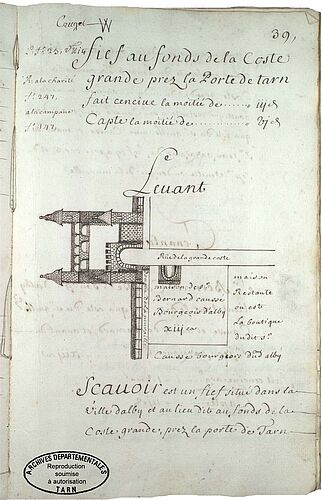 Cauzet W
39,
f.° 23, 
R. a la charité
f.° 247.
a la campane
f.° 347.
Fief au fonds de la Coste
grande prez la Porte de tarn
fait cencive la moitié de ........ iij d
Capte la moitié de ........ 
Le
Levant
Rüe de la grande coste
maison de s.r
Bernard causse
Bourgeois d'alby
xiij ca
maison
Restante
ou est
La boutique
dudit s.r
Causse bourgeois dud alby
Scavoir est un fief situé dans la
Ville d'alby et au lieu dit au fonds de la
Coste grande, prez la porte de Tarn
ARCHIVES DEPARTEMENTALES
Reproduction
soumise
à autorisation
TARN